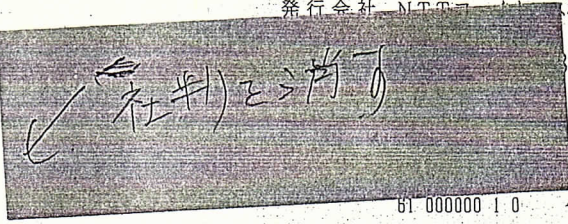 発行会社 NTTコ
社判とる消す
61 000000 1 0